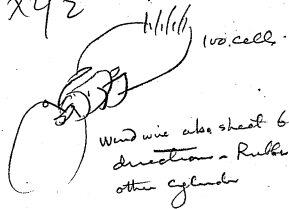 X Y Z
100. cells.
Wind wire also sheet 6
directions - Rubber
other cylinder